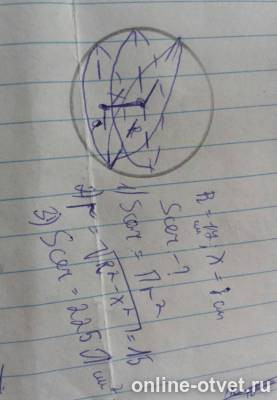 R = 17 см, x = 8 см
Sсеч - ?
1) Sсеч = Пr²
2) r = √R² - x² = 15
3) Sсеч = 225П см²
online-otvet.ru